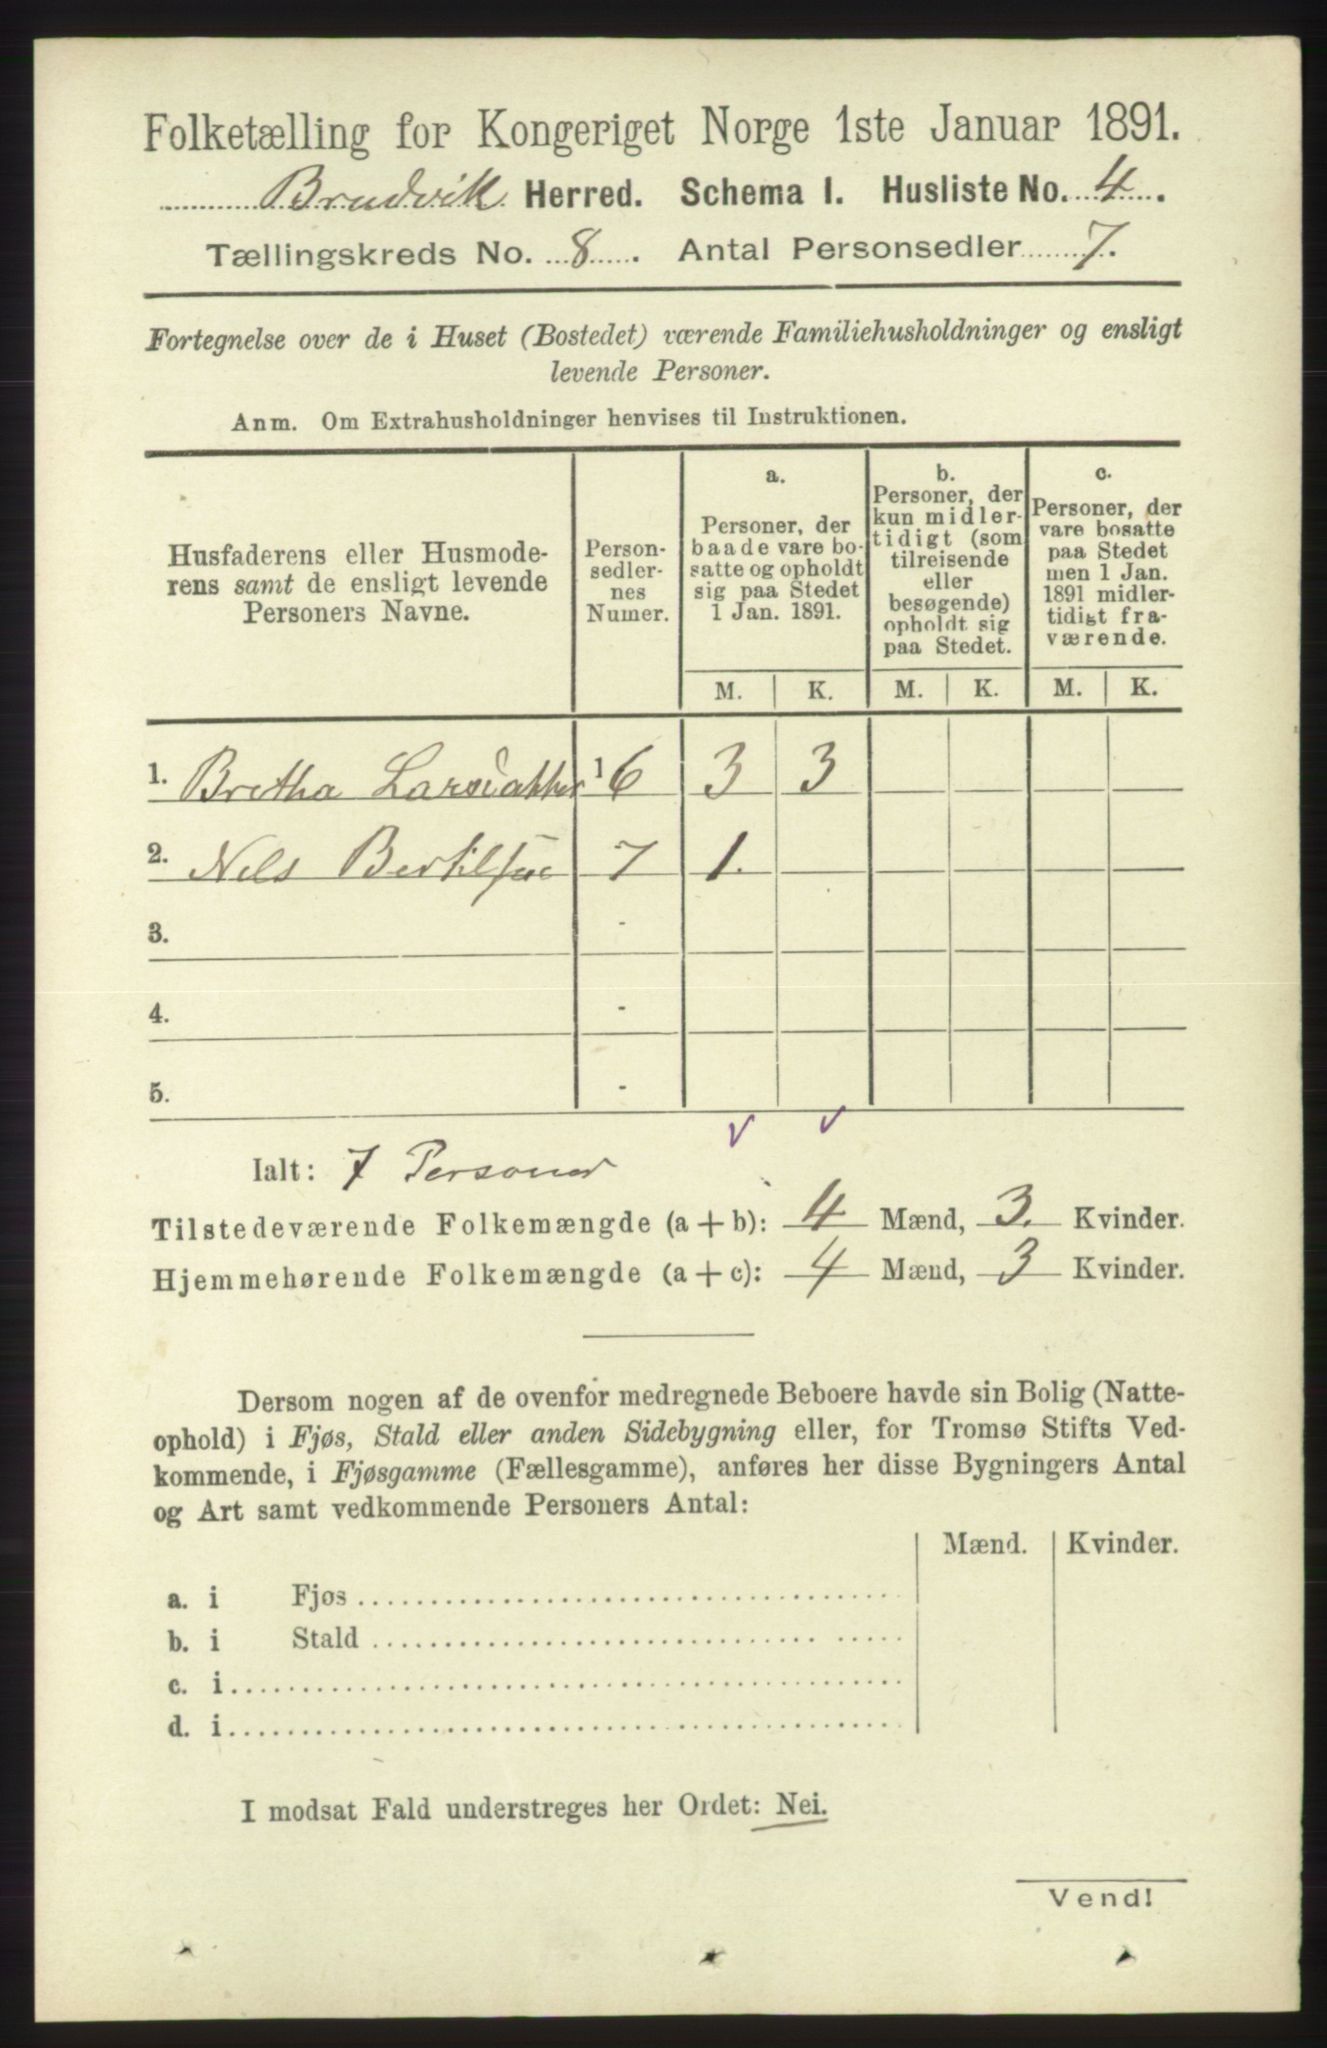 Folketælling for Kongeriget Norge 1ste Januar 1891.
Bruvik Herred. Schema I. Husliste No. 4.
Tællingskreds No. 8. Antal Personsedler 7.
Fortegnelse over de i Huset (Bostedet) værende Familiehusholdninger og ensligt
levende Personer.
Anm. Om Extrahusholdninger henvises til Instruktionen.
Husfaderens eller Husmode-
rens samt de ensligt levende
Personers Navne.
Person-
sedler-
nes
Numer.
a.
Personer, der
baade vare bo-
satte og opholdt
sig paa Stedet
1 Jan. 1891.
b.
Personer, der
kun midler-
tidigt (som
tilreisende
eller
besøgende)
opholdt sig
paa Stedet.
c.
Personer, der
vare bosatte
paa Stedet
men 1 Jan.
1891 midler-
tidigt fra-
værende.
M. K. M. K. M. K.
1. Bretha 1 6 3 3
2. Nels Bertilsen 7 1.
3. -
4. -
5. -
Ialt: 7 Personer
Tilstedeværende Folkemængde (a+b): 4 Mænd, 3. Kvinder.
Hjemmehørende Folkemængde (a+c): 4 Mænd, 3 Kvinder.
Dersom nogen af de ovenfor medregnede Beboere havde sin Bolig (Natte-
ophold) i Fjøs, Stald eller anden Sidebygning eller, for Tromsø Stifts Ved-
kommende, i Fjøsgamme (Fællesgamme), anføres her disse Bygningers Antal
og Art samt vedkommende Personers Antal:
Mænd. Kvinder.
a. i Fjøs
b. i Stald
c. i
d. i
I modsat Fald understreges her Ordet: Nei.
Vend!